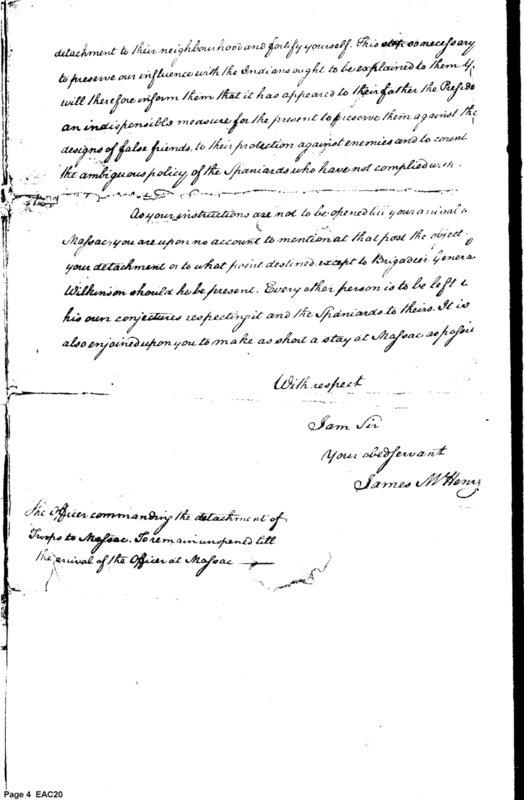 detachment to their neighbourhood and fortify yourself. This step so necessary
to preserve our influence with the Indians ought to be explained to them. Y
will therefore inform them that it has appeared to their father the Preside
an indispensible measure for the present to preserve them against the
designs of false friends, to their protection against enemies and to
the ambiguous policy of the Spaniards who have not complied with
As your instructions are not to be opened till your arrival a
Massac, you are upon no account to mention at that post the object
your detachment or to what point destined except to Brigadier Genera
Wilkinson should he be present. Every other person is to be left t
his own conjectures respecting it and the Spaniards to theirs. It is
also enjoined upon you to make as short a stay at Massac as possi
With respect
I am Sir
Your obed servant
James McHenry
The Officer commanding the detachment of
Troops to Massac. To remain unopened till
the arrival of the Officer at Massac
Page 4 EAC20